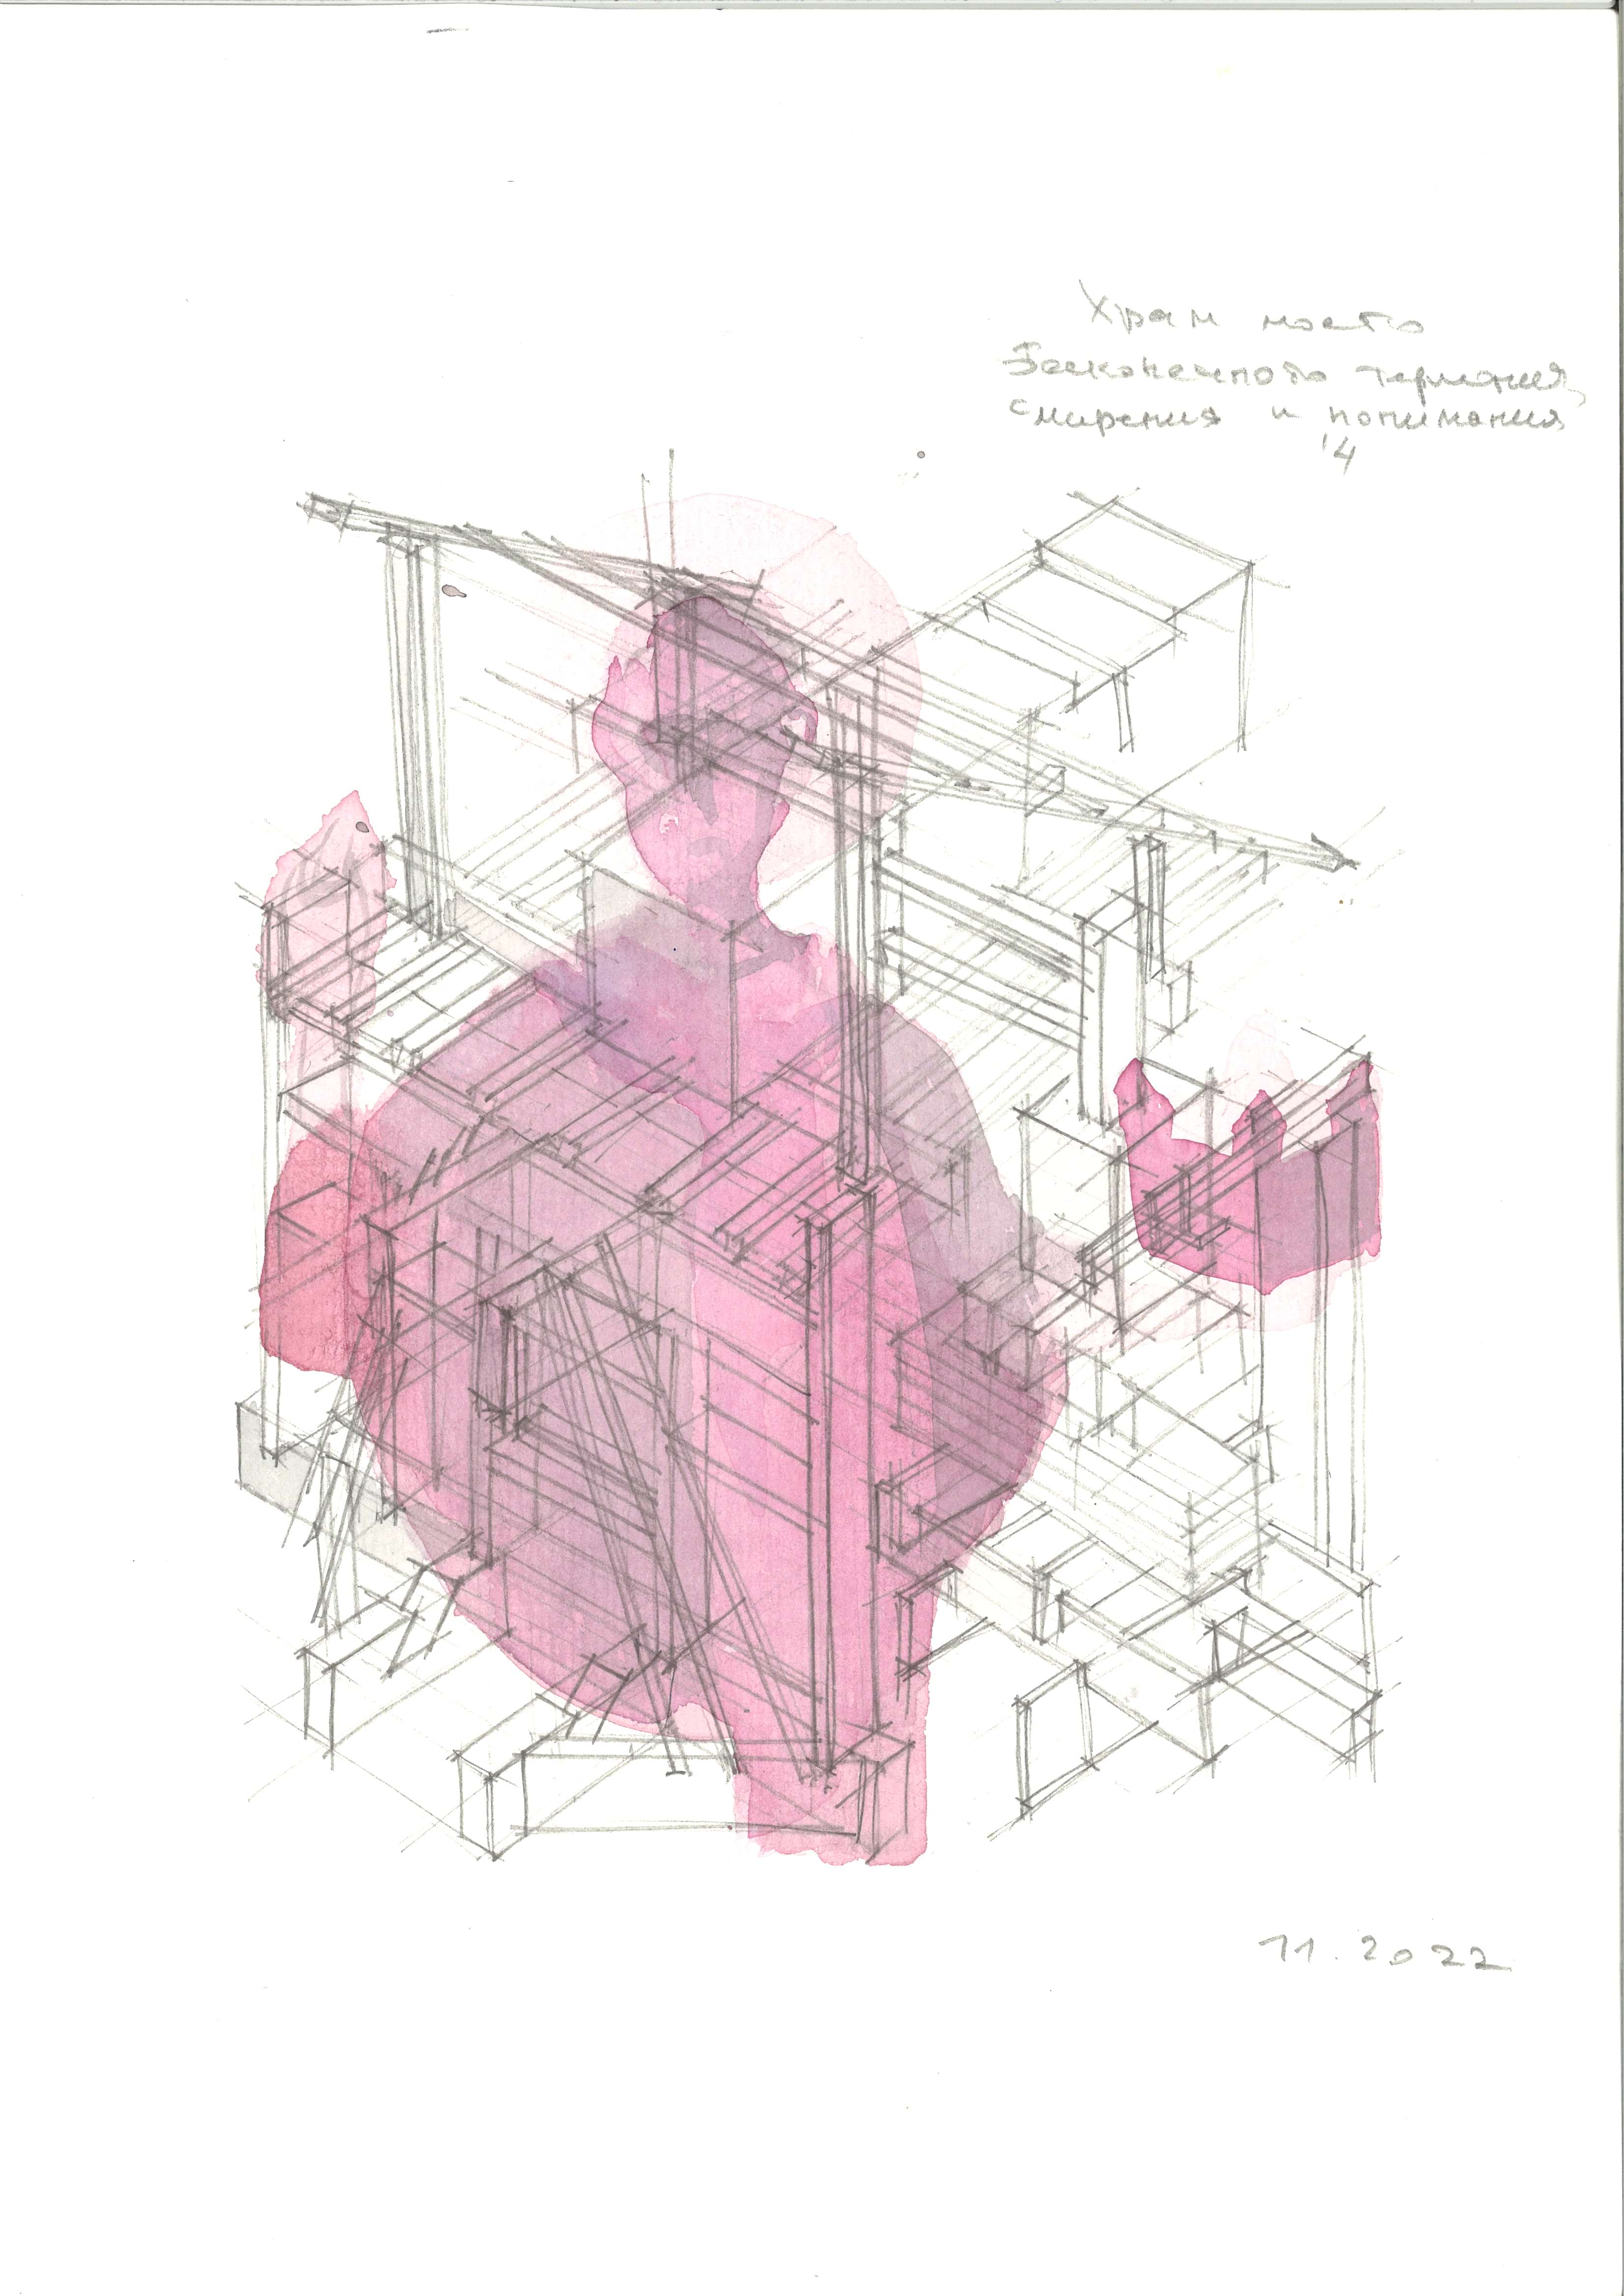 Храм моего
бесконечного терпения,
смирения и понимания
'4
11.2022